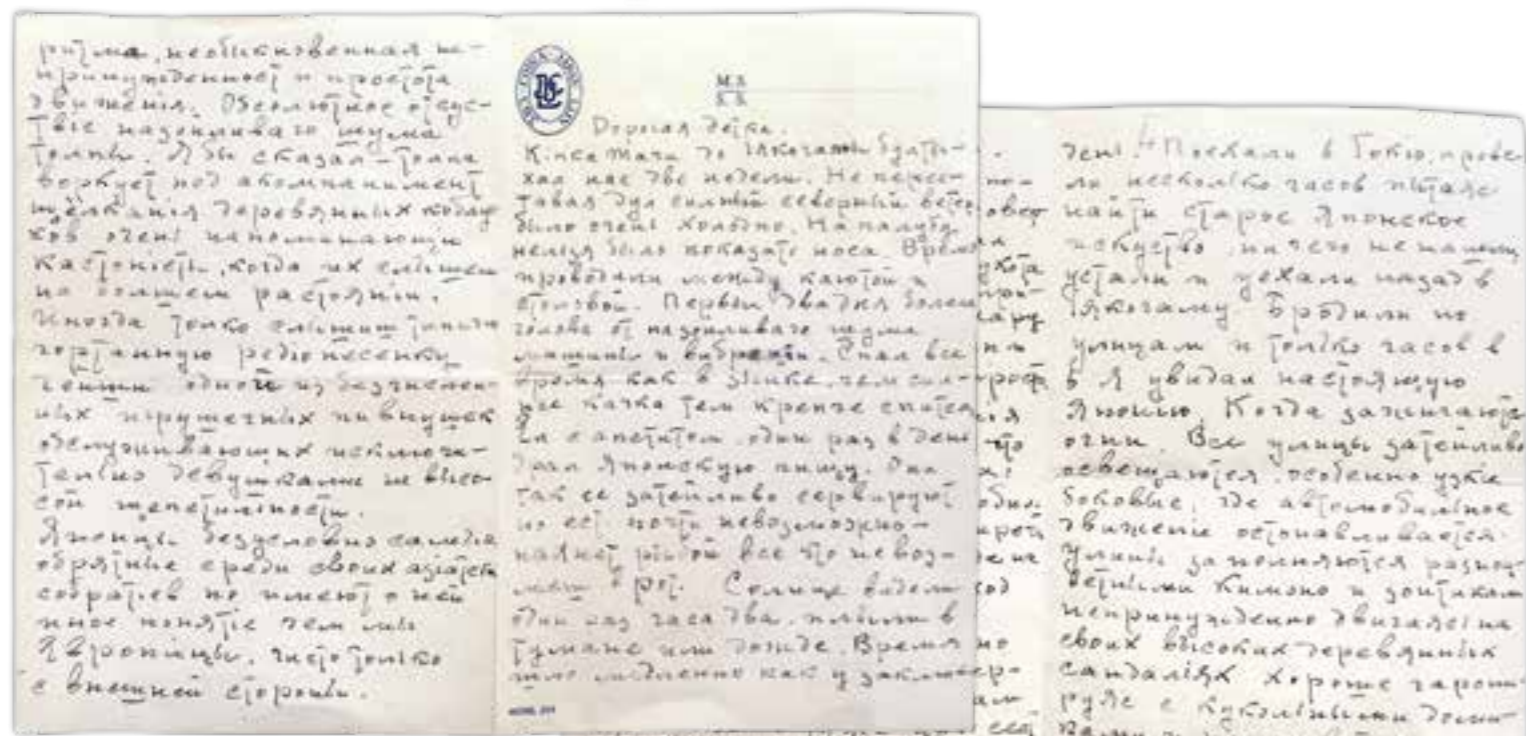 ритма, необикновенная не-
принужденност и простота
движенія. Обсолютное отсус-
твіе назойливаго шума
толпы. Я бы сказал – толпа
воркует под акомпанимент
щелканія деревянных каблу
ков очень напоминающи
когда их
на болшем растояніи.
Иногда толко слышиш
гортанную редіо песенку
одной из безчислен-
ных игрушечных пивнушек
обслуживающих исключи-
телно девушками не высо-
кой щепетилности.
Японцы безусловно
среди своих азіатск
собратіев но имеют о ней
иное понятіе чем мы
чисто толко
с внешней стороны.
M.S.
S.S.
Дорогая детка.
до Iякогамы булты-
хал нас две недели. Не перес-
тавая дул силный северный вет
было очень холодно. На палубу
нелзя было показать носа. Время
проводили между каютой и
столовой. Первыи два дня болела
голова от назойливаго шума
машины и вибрации. Спал все
время как в люлке, чем сил-
нее качка тем крепче спится
Ел с апетитом. один раз в день
дают Японскую пищу. Она
так се затейливо сервируют
но ест почти невозможно –
рыбой все что не воз-
меш в рот. Солнце видели
один раз часа два. плыли в
тумане или дожде. Время
шло медленно как у заключер-
день. Поехали в Токіо, прове
ли несколько часов пытаяс
найти старое Японское
искуство, ничего не нашли
устали и уехали назад в
Iякогаму Бродили по
улицам и толко часов в
6 я увидал настоящую
Японію. Когда зажигают
огни. Все улицы затейливо
освещаются, особенно узки
боковые, где автомобилное
движение остонавливается.
Улицы заполняются разноц
ветными Кимоно и зонтикам
непринужденно двигаяс на
своих высоких деревянных
сандаліях хорошо гармони
руяс с кукольными доми